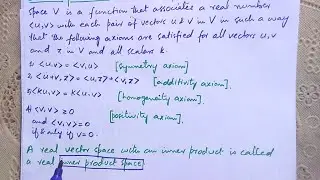 space V is a function that associates a real number
<u,v> with each pair of vectors u & v in V in such a way
that the following axioms are satisfied for all vectors u, v
and z in V and all scalars k.
1) <u,v> = <v,u> [symmetry axiom]
2) <u+v,z> = <u,z> + <v,z> [additivity axiom].
3) <ku,v> = k<u,v> [homogeneity axiom]
4) <v,v> ≥ 0 [positivity axiom].
and <v,v> = 0
if & only if v = 0.
A real vector space with an inner product is called
a real inner product space